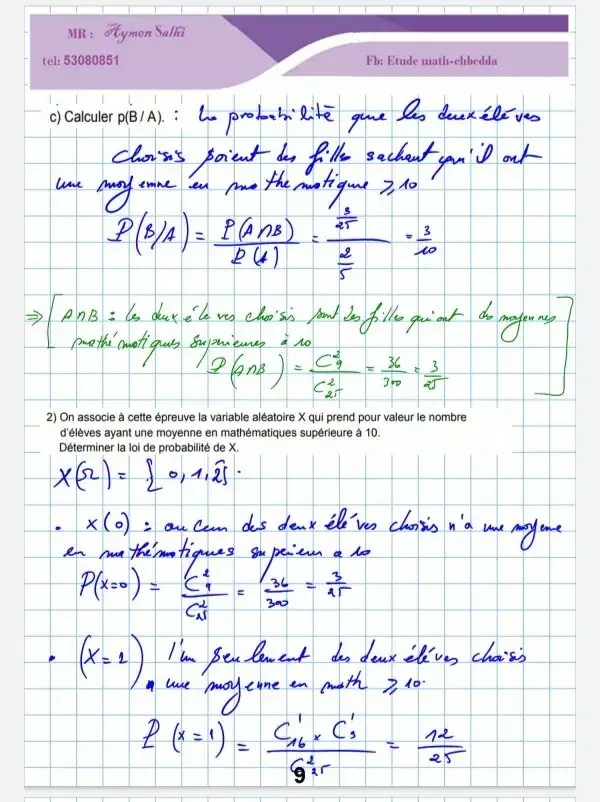 MR : Aymen Salhi
tel: 53080851
Fb: Etude math-chbedda
c) Calculer p(B / A). : la probabilité que les deux éléves
choisis soient des filles sachant qu'il ont
une moyenne en mathematique ⩾ 10
P(B/A) = P(A∩B) / P(A) = (3/25) / (2/5) = 3/10
⇒ [ A∩B : les deux éleves choisis sont des filles qui ont des moyennes
mathématiques superieures à 10
P(A∩B) = C²₉ / C²₂₅ = 36/300 = 3/25 ]
2) On associe à cette épreuve la variable aléatoire X qui prend pour valeur le nombre
d'élèves ayant une moyenne en mathématiques supérieure à 10.
Déterminer la loi de probabilité de X.
X(Ω) = { 0, 1, 2} .
• X(0) : aucun des deux éléves choisis n'a une moyenne
en mathématiques superieur a 10
P(X=0) = C²₉ / C²₂₅ = 36/300 = 3/25
• (X = 1) l'un seulement des deux éléves choisis
a une moyenne en math ⩾ 10.
P (X = 1) = C¹₁₆ × C¹₉ / C²₂₅ = 12/25
9